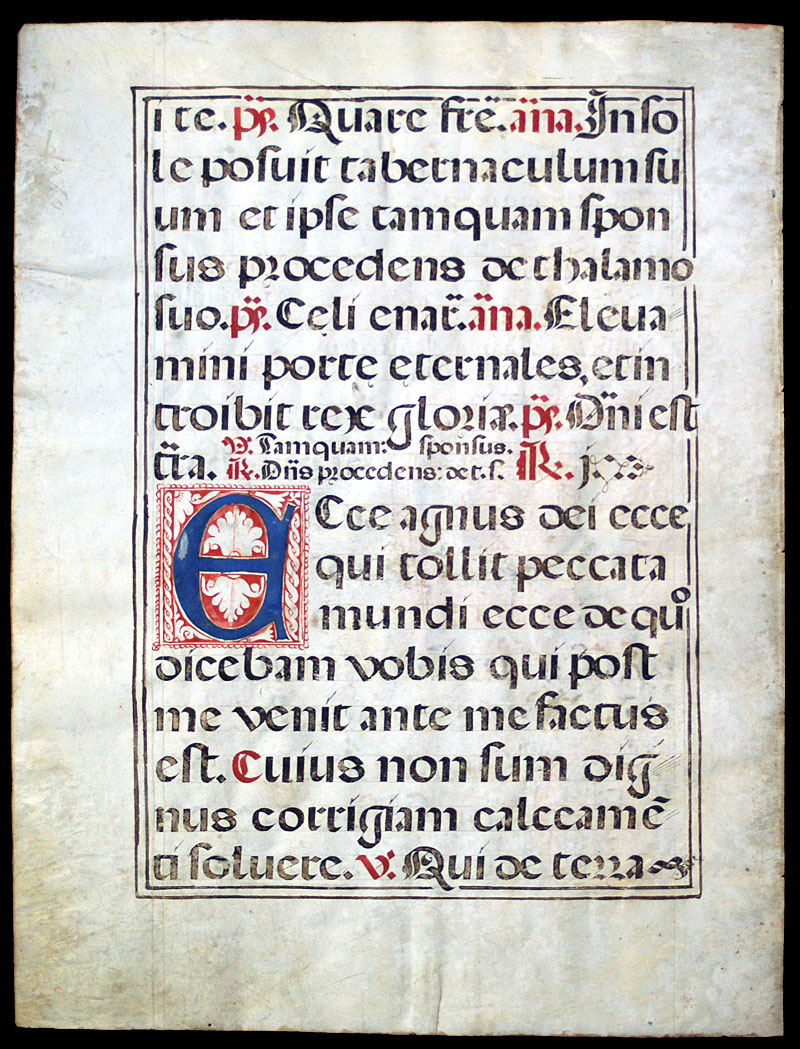 ite. ps̄. Quare frē. āna. In so
le posuit tabernaculum su
um et ipse tamquam spon
sus procedens de thalamo
suo. ps̄. Cęli enar̄. āna. Eleva
mini portę ęternales, et in
troibit rex glorię. ps̄. Dn̄i est
tr̄a. ℣. Tamquam: sponsus.
℟. Dn̄s procedens: de t. s. ℟.
Ecce agnus dei ecce
qui tollit peccata
mundi ecce de quo
dicebam vobis qui post
me venit ante me factus
est. Cuius non sum dig
nus corrigiam calceamē
ti soluere. ℣. Qui de terra